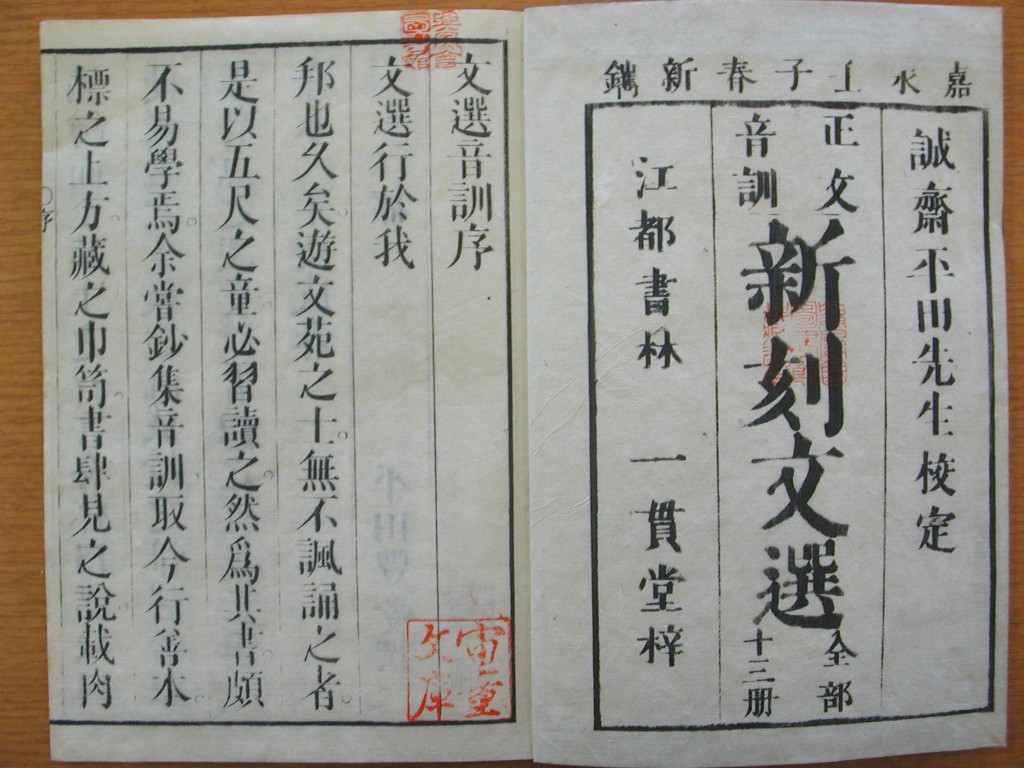 嘉永壬子春新鐫
誠齋平田先生校定
正文
音訓
新刻文選
全部
十三册
江都書林 一貫堂梓
文選音訓序
文選行於我
邦也久矣。遊文苑之士。無不諷誦之者。
是以五尺之童必習讀之。然爲其書。頗
不易學焉。余嘗鈔集音訓。取今行善本。
標之上方。藏之巾笥。書肆見之說。載肉
〇序
文庫